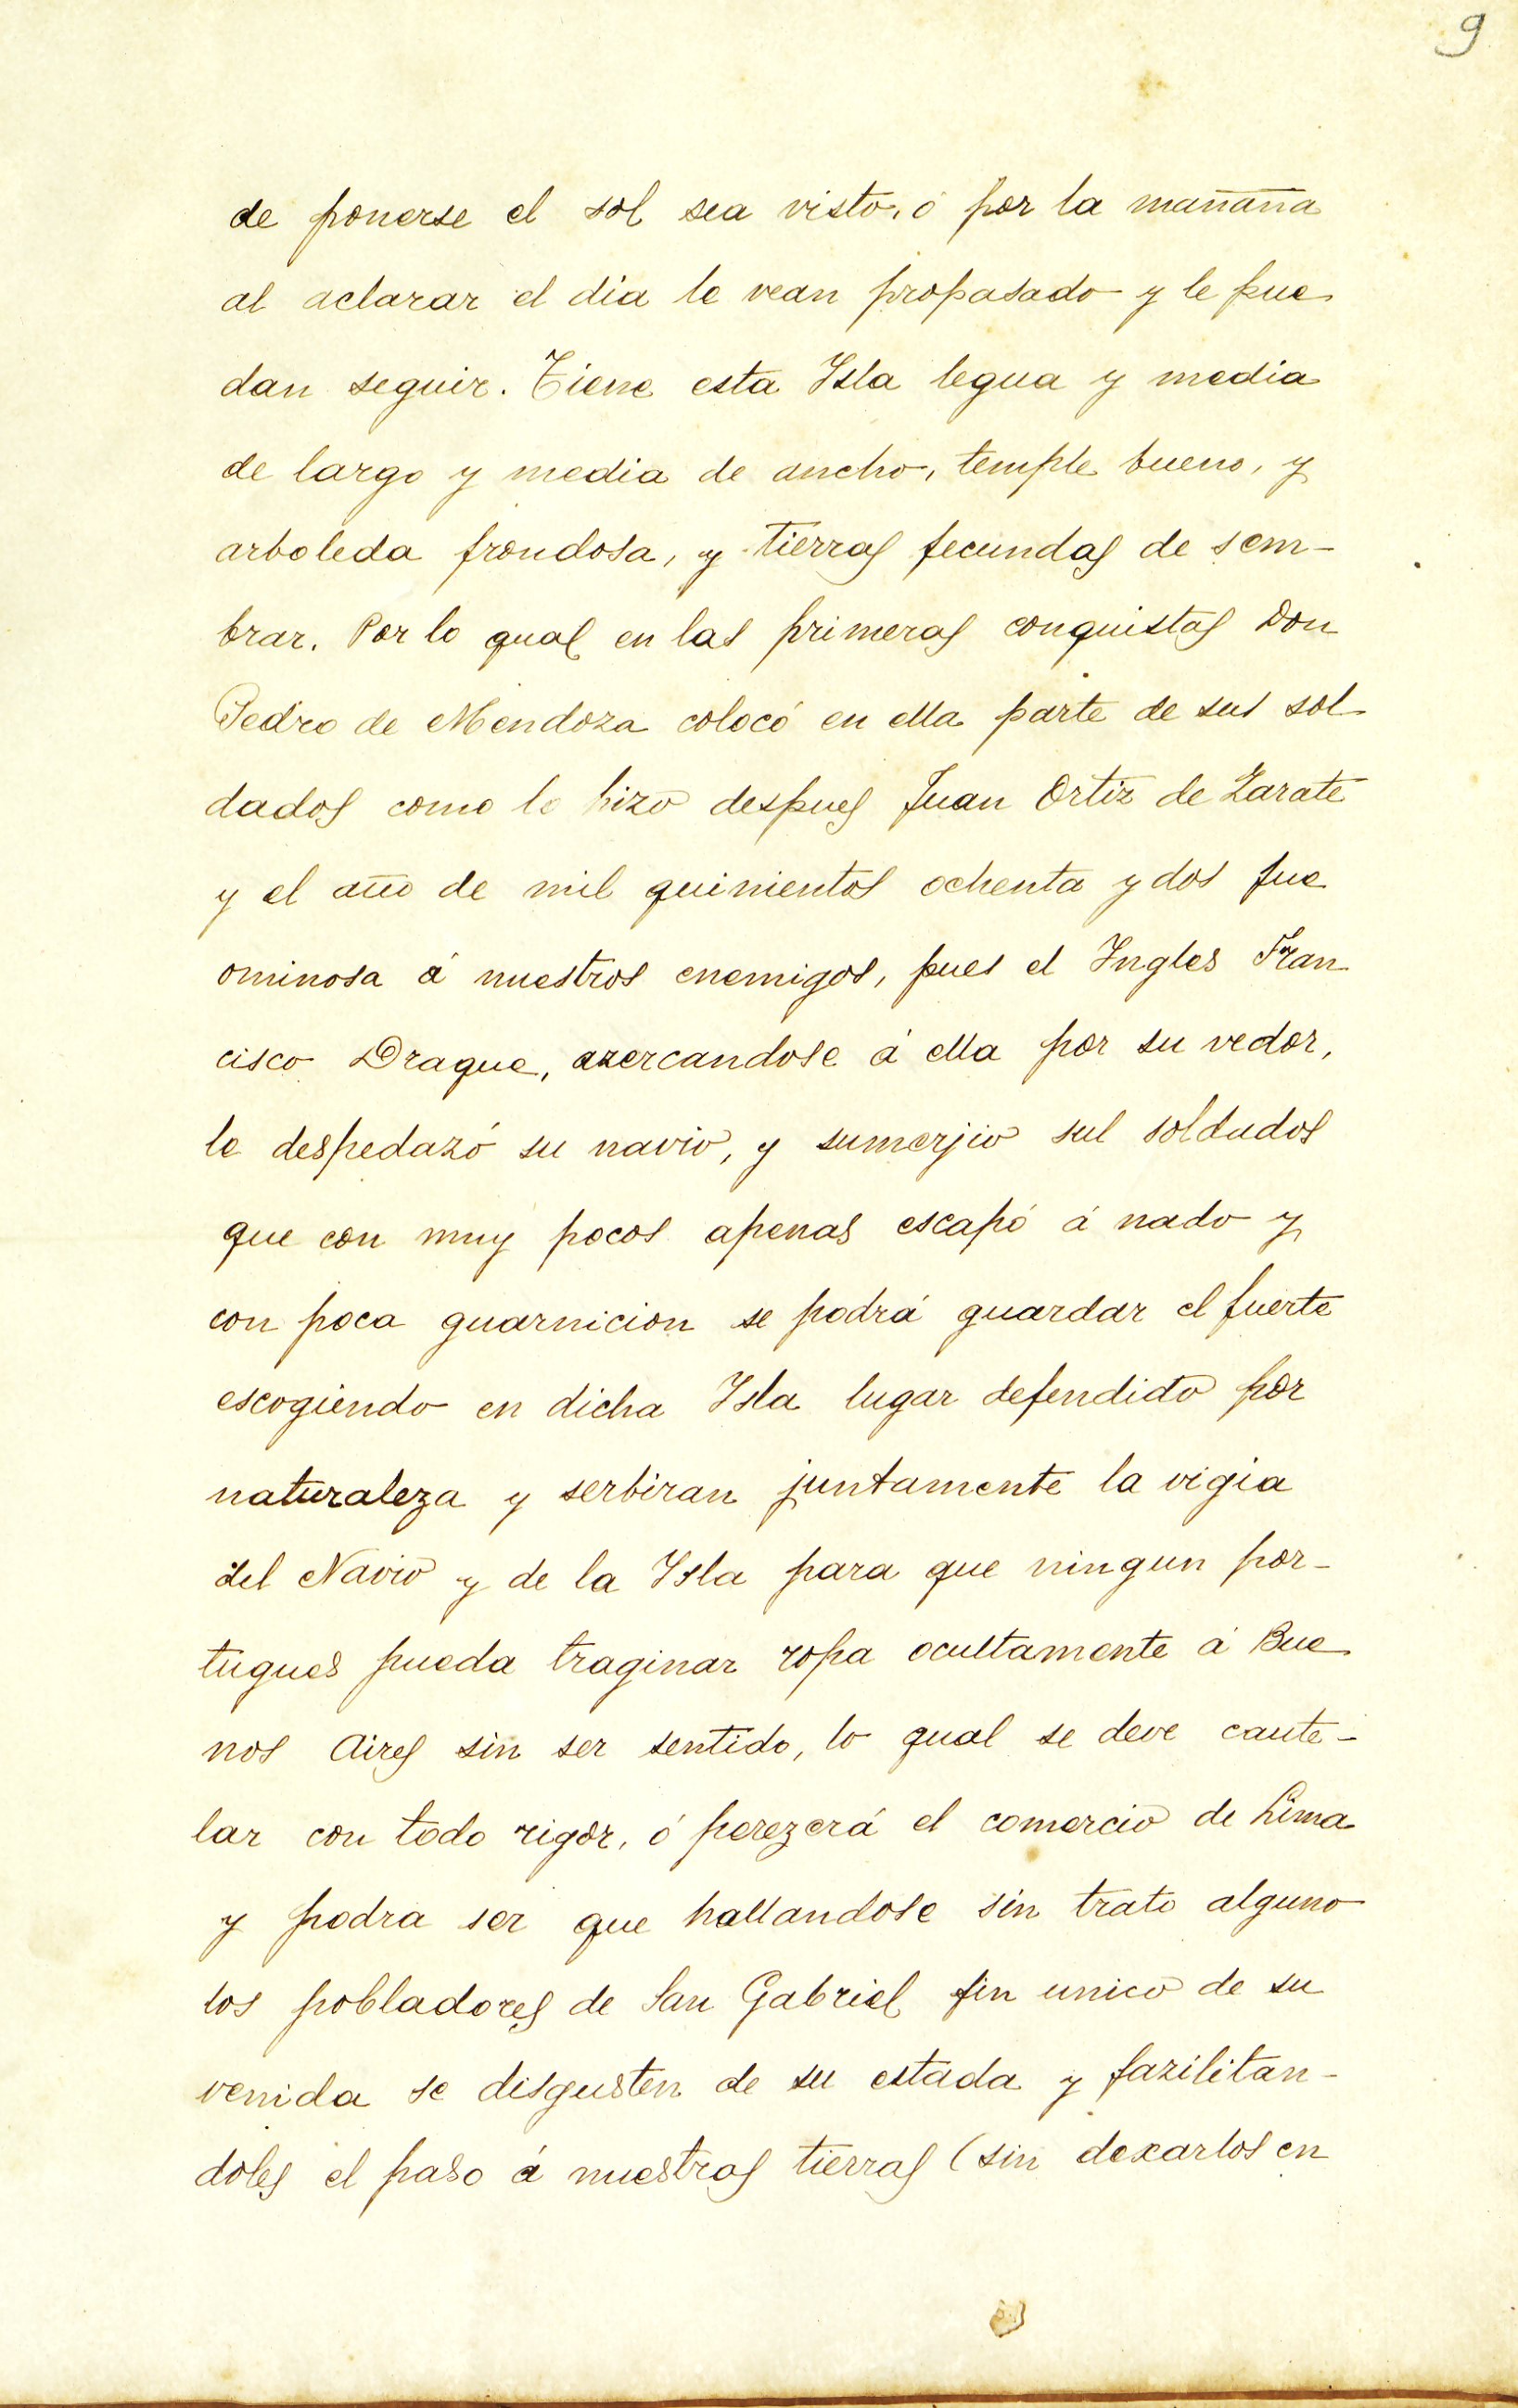 9
de ponerse el sol sea visto, ó por la mañana
al aclarar el dia le vean propasado y le pue
dan seguir. Tiene esta Isla legua y media
de largo y media de ancho, temple bueno, y
arboleda frondosa, y tierras fecundas de sem-
brar. Por lo qual en las primeras conquistas Don
Pedro de Mendoza colocó en ella parte de sus sol
dados como lo hizo despues Juan Ortiz de Zarate
y el año de mil quinientos ochenta y dos fue
ominosa á nuestros enemigos, pues el Ingles Fran
cisco Draque, azercandose á ella por su vedor,
le despedazó su navio, y sumerjio sus soldados
que con muy pocos apenas escapó á nado y
con poca guarnicion se podrá guardar el fuerte
escogiendo en dicha Isla lugar defendido por
naturaleza y serbiran juntamente la vigia
del Navio y de la Isla para que ningun por-
tugues pueda traginar ropa ocultamente á Bue
nos Aires sin ser sentido, lo qual se deve caute-
lar con todo rigor, ó perezerá el comercio de Lima
y podra ser que hallandose sin trato alguno
los pobladores de San Gabriel fin unico de su
venida se disgusten de su estada y fazilitan-
doles el paso á nuestras tierras (sin dexarlos en